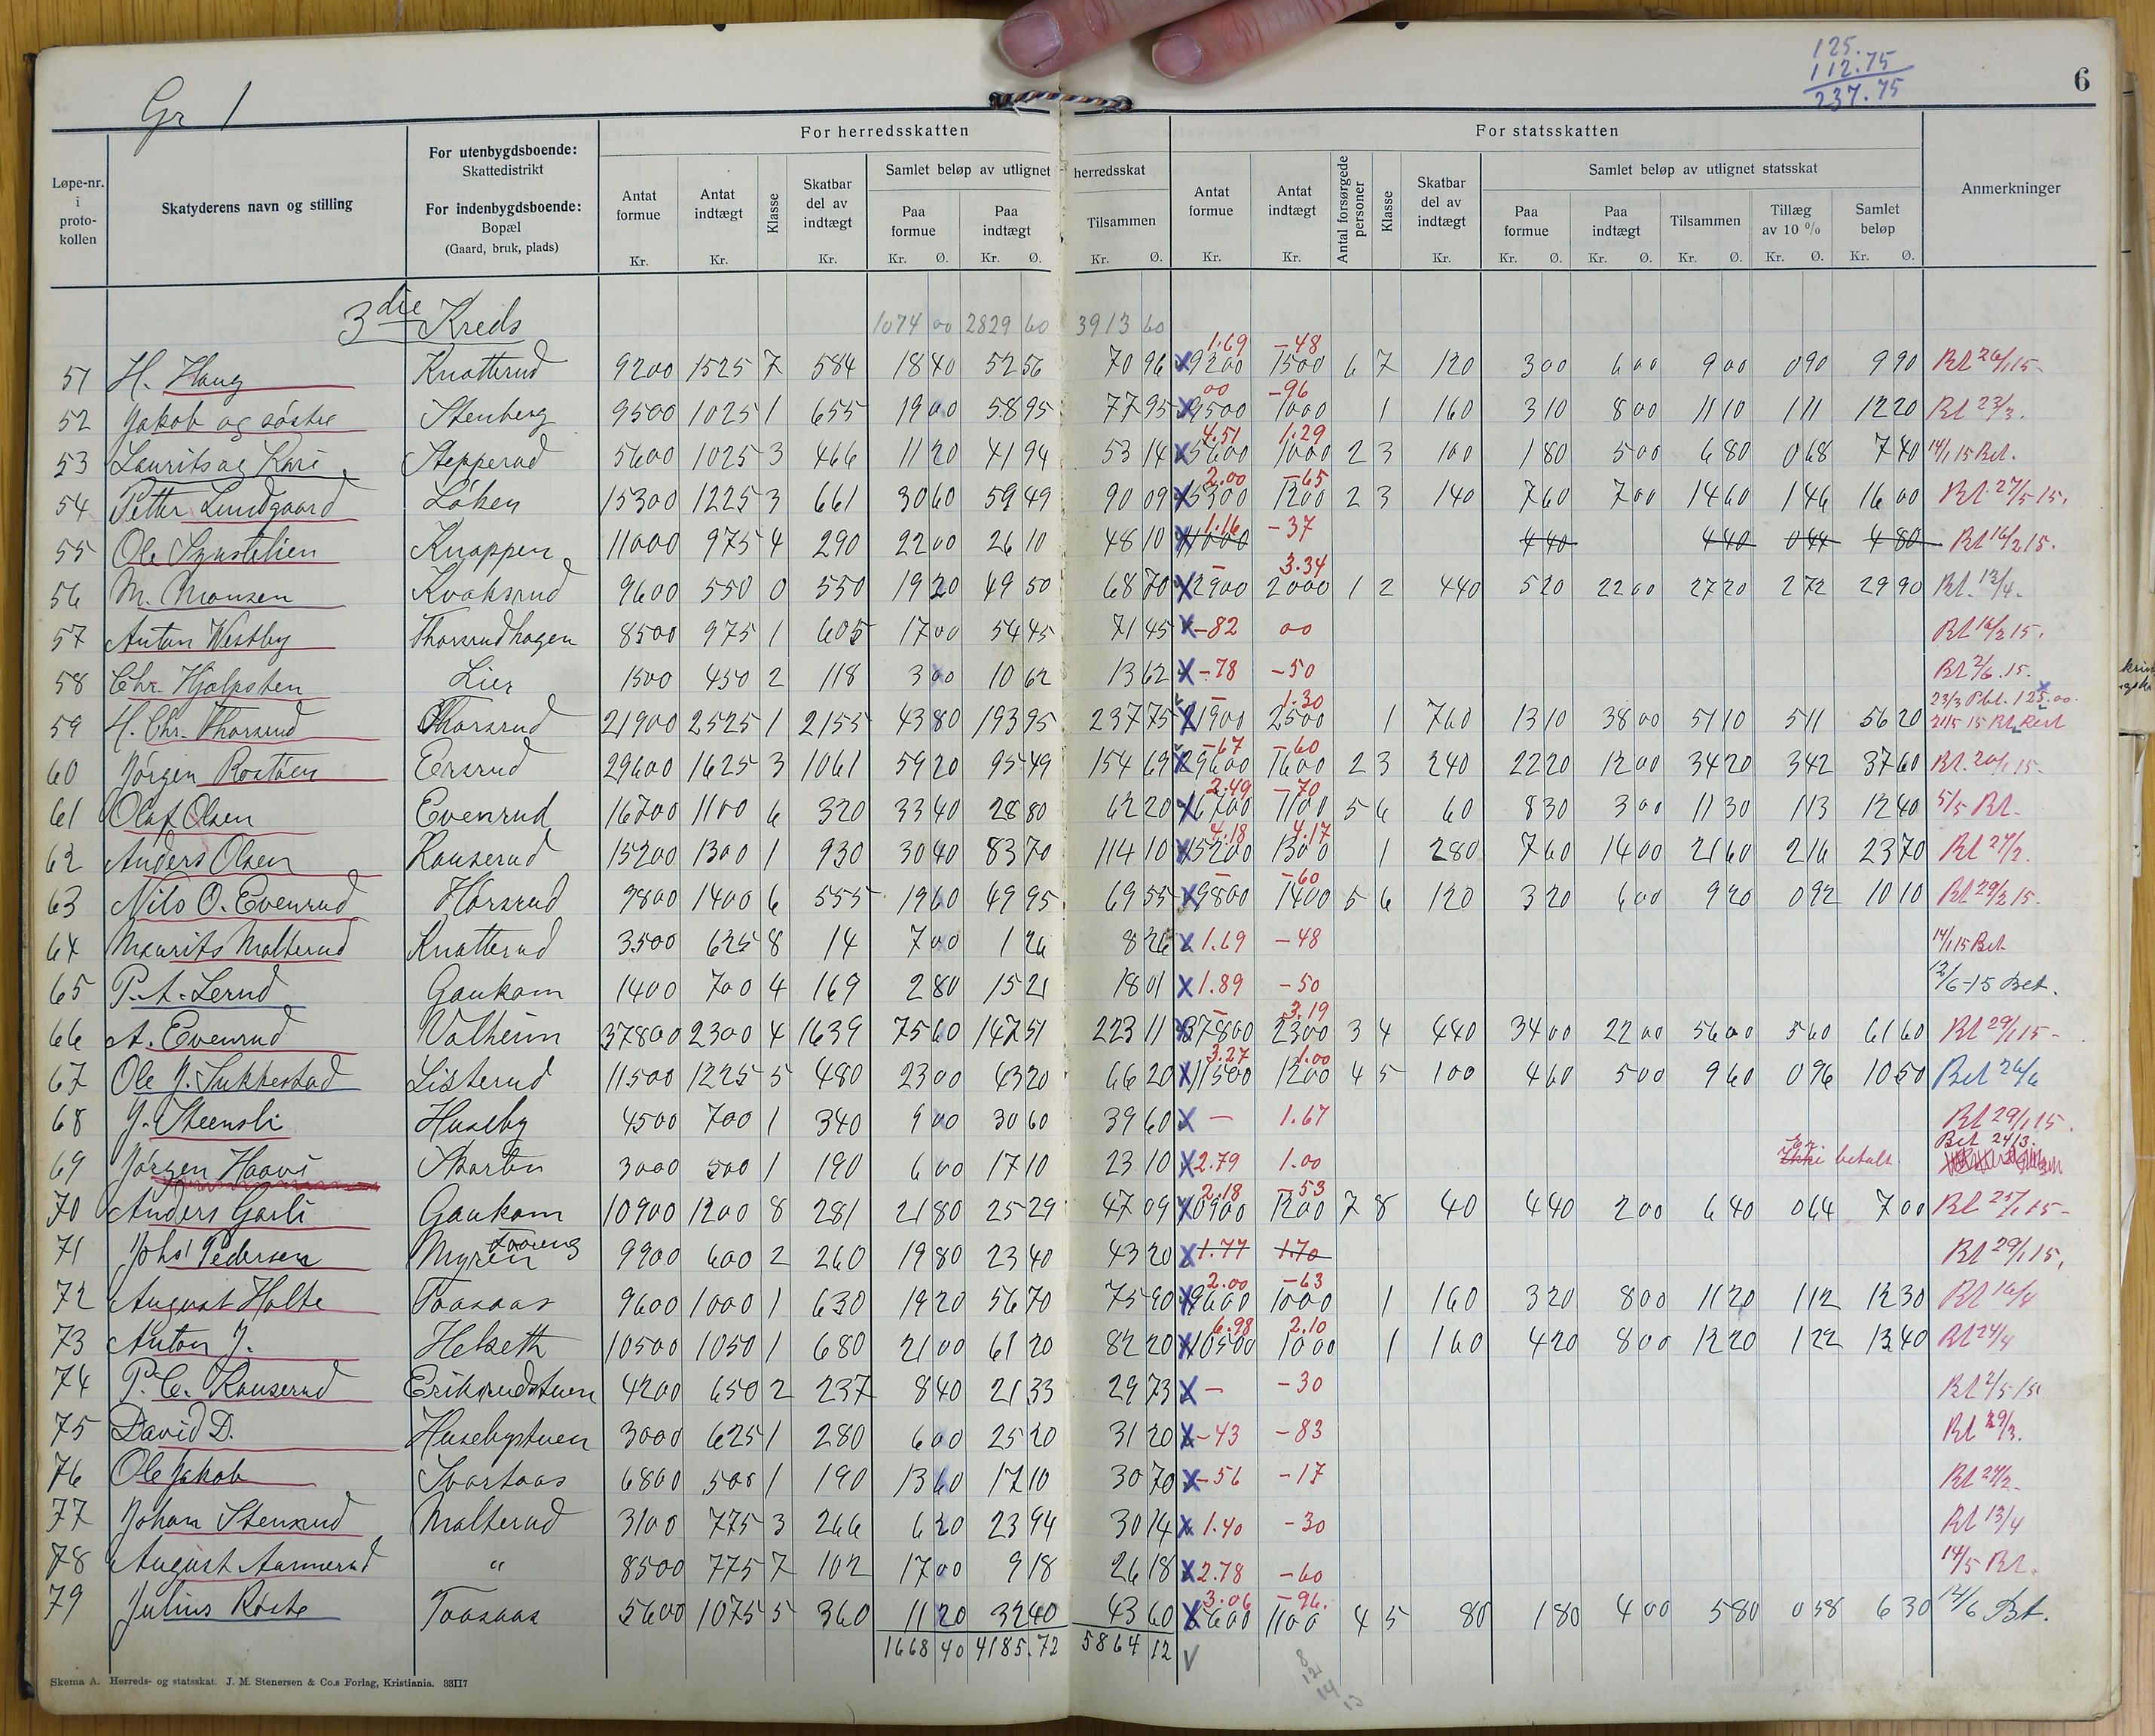 125.
112.75
237.75
6
Gr 1
Løpe-nr. i proto-kollen
Skatyderens navn og stilling
For utenbygdsboende: Skattedistrikt
For indenbygdsboende: Bopæl (Gaard, bruk, plads)
For herredsskatten
Antat formue Kr.
Antat indtægt Kr.
Klasse
Skatbar del av indtægt Kr.
Samlet beløp av utlignet herredsskat
Paa formue Kr. Ø.
Paa indtægt Kr. Ø.
Tilsammen Kr. Ø.
For statsskatten
Antat formue Kr.
Antat indtægt Kr.
Antal forsørgede personer
Klasse
Skatbar del av indtægt Kr.
Samlet beløp av utlignet statsskat
Paa formue Kr. Ø.
Paa indtægt Kr. Ø.
Tilsammen Kr. Ø.
Tillæg av 10 % Kr. Ø.
Samlet beløp Kr. Ø.
Anmerkninger
3die Kreds 1074 00 2829 60 3913 60
1.69 -48
51 H. Haug Knatterud 9200 1525 7 584 18 40 52 56 70 96 X 9200 1500 6 7 120 3 00 6 00 9 00 0 90 9 90 Bt 26/1 15-
00 -96
52 Jakob og søstre Stenberg 9500 1025 1 655 19 00 58 95 77 95 X 9500 1000 1 160 3 10 8 00 11 10 1 11 12 20 Bt 23/3.
4.51 1.29
53 Laurits og Kari Stepperud 5600 1025 3 466 11 20 41 94 53 14 X 5600 1000 2 3 100 1 80 5 00 6 80 0 68 7 40 14/1 15 Bet.
2.00 -65
54 Petter Lundgaard Løken 15300 1225 3 661 30 60 59 49 90 09 X 15300 1200 2 3 140 7 60 7 00 14 60 1 46 16 00 Bt. 27/5 15.
1.16 -37
55 Ole Knappen 11000 975 4 290 22 00 26 10 48 10 X 11000 4 40 4 40 0 44 4 80 Bt 16/2 15.
- 3.34
56 M. Monsen Kvaksrud 9600 550 0 550 19 20 49 50 68 70 X 12900 2000 1 2 440 5 20 22 00 27 20 2 72 29 90 Bt. 12/4.
57 Anton Westby Thorsrudhagen 8500 975 1 605 17 00 54 45 71 45 X -82 00 Bt 16/2 15.
58 Chr. Hjalpsten Lier 1500 450 2 118 3 00 10 62 13 62 X -78 -50 Bt 2/6 15.
- 1.30 23/3 Pbt. 125.00.
59 H. Chr. Thorsrud Thorsrud 21900 2525 1 2155 43 80 193 95 237 75 X 21900 2500 1 760 13 10 38 00 51 10 5 11 56 20 21/5 15 Bt. Rest
-67 -60
60 Jørgen Rostøen Ersrud 29600 1625 3 1061 59 20 95 49 154 69 X 29600 1600 2 3 240 22 20 12 00 34 20 3 42 37 60 Bt. 20/1 15.
2.49 -70
61 Olaf Olsen Evenrud 16700 1100 6 320 33 40 28 80 62 20 X 16700 1100 5 6 60 8 30 3 00 11 30 1 13 12 40 5/5 Bt.
4.18 4.17
62 Anders Olsen Rauserud 15200 1300 1 930 30 40 83 70 114 10 X 15200 1300 1 280 7 60 14 00 21 60 2 16 23 70 Bt 27/2.
- -60
63 Nils O. Evenrud Hørsrud 9800 1400 6 555 19 60 49 95 69 55 X 9800 1400 5 6 120 3 20 6 00 9 20 0 92 10 10 Bt 29/2 15.
64 Maurits Malterud Knatterud 3500 625 8 14 7 00 1 26 8 26 X 1.69 -48 14/1 15 Bet.
65 P. A. Lerud Gaukom 1400 700 4 169 2 80 15 21 18 01 X 1.89 -50 12/6-15 Bet.
- 3.19
66 A. Evenrud Valheim 37800 2300 4 1639 75 60 147 51 223 11 X 37800 2300 3 4 440 34 00 22 00 56 00 5 60 61 60 Bt 29/1 15-
3.27 1.00
67 Ole J. Sukkestad Listerud 11500 1225 5 480 23 00 43 20 66 20 X 11500 1200 4 5 100 4 60 5 00 9 60 0 96 10 50 Bet 26/6
68 J. Steensli Huseby 4500 700 1 340 9 00 30 60 39 60 X - 1.67 Bt 29/1 15.
Er Bet 24/3.
69 Jørgen Haavi 3000 500 1 190 6 00 17 10 23 10 X 2.79 1.00 Ikke betalt.
2.18 -53
70 Anders Garli Gaukom 10900 1200 8 281 21 80 25 29 47 09 X 10900 1200 7 8 40 4 40 2 00 6 40 0 64 7 00 Bt 25/1 15-
71 Johs! Pedersen Myren 9900 600 2 260 19 80 23 40 43 20 X 1.77 1.70 Bt 29/1 15.
2.00 -63
72 August Holte Taasaas 9600 1000 1 630 19 20 56 70 75 90 X 9600 1000 1 160 3 20 8 00 11 20 1 12 12 30 Bt 16/4
6.98 2.10
73 Anton J. Helseth 10500 1050 1 680 21 00 61 20 82 20 X 10500 1000 1 160 4 20 8 00 12 20 1 22 13 40 Bt 24/4
74 P. C. Rauserud Eriksrudstuen 4200 650 2 237 8 40 21 33 29 73 X - -30 Bt 2/5 15.
75 David D. Husebystuen 3000 625 1 280 6 00 25 20 31 20 X -43 -83 Bt 29/3.
76 Ole Jakob Svartaas 6800 500 1 190 13 60 17 10 30 70 X -56 -17 Bt 27/2.
77 Johan Stensrud Malterud 3100 775 3 266 6 20 23 94 30 14 X 1.40 -30 Bt 13/4
78 August Aamerud " 8500 775 7 102 17 00 9 18 26 18 X 2.78 -60 14/5 Bt.
3.06 -96.
79 Julius Røste Taasaas 5600 1075 5 360 11 20 32 40 43 60 X 5600 1100 4 5 80 1 80 4 00 5 80 0 58 6 30 12/6 Bt.
1668 40 4185.72 5864 12
8
12
14
13
Skema A. Herreds- og statsskat. J. M. Stenersen & Co.s Forlag, Kristiania. 33117